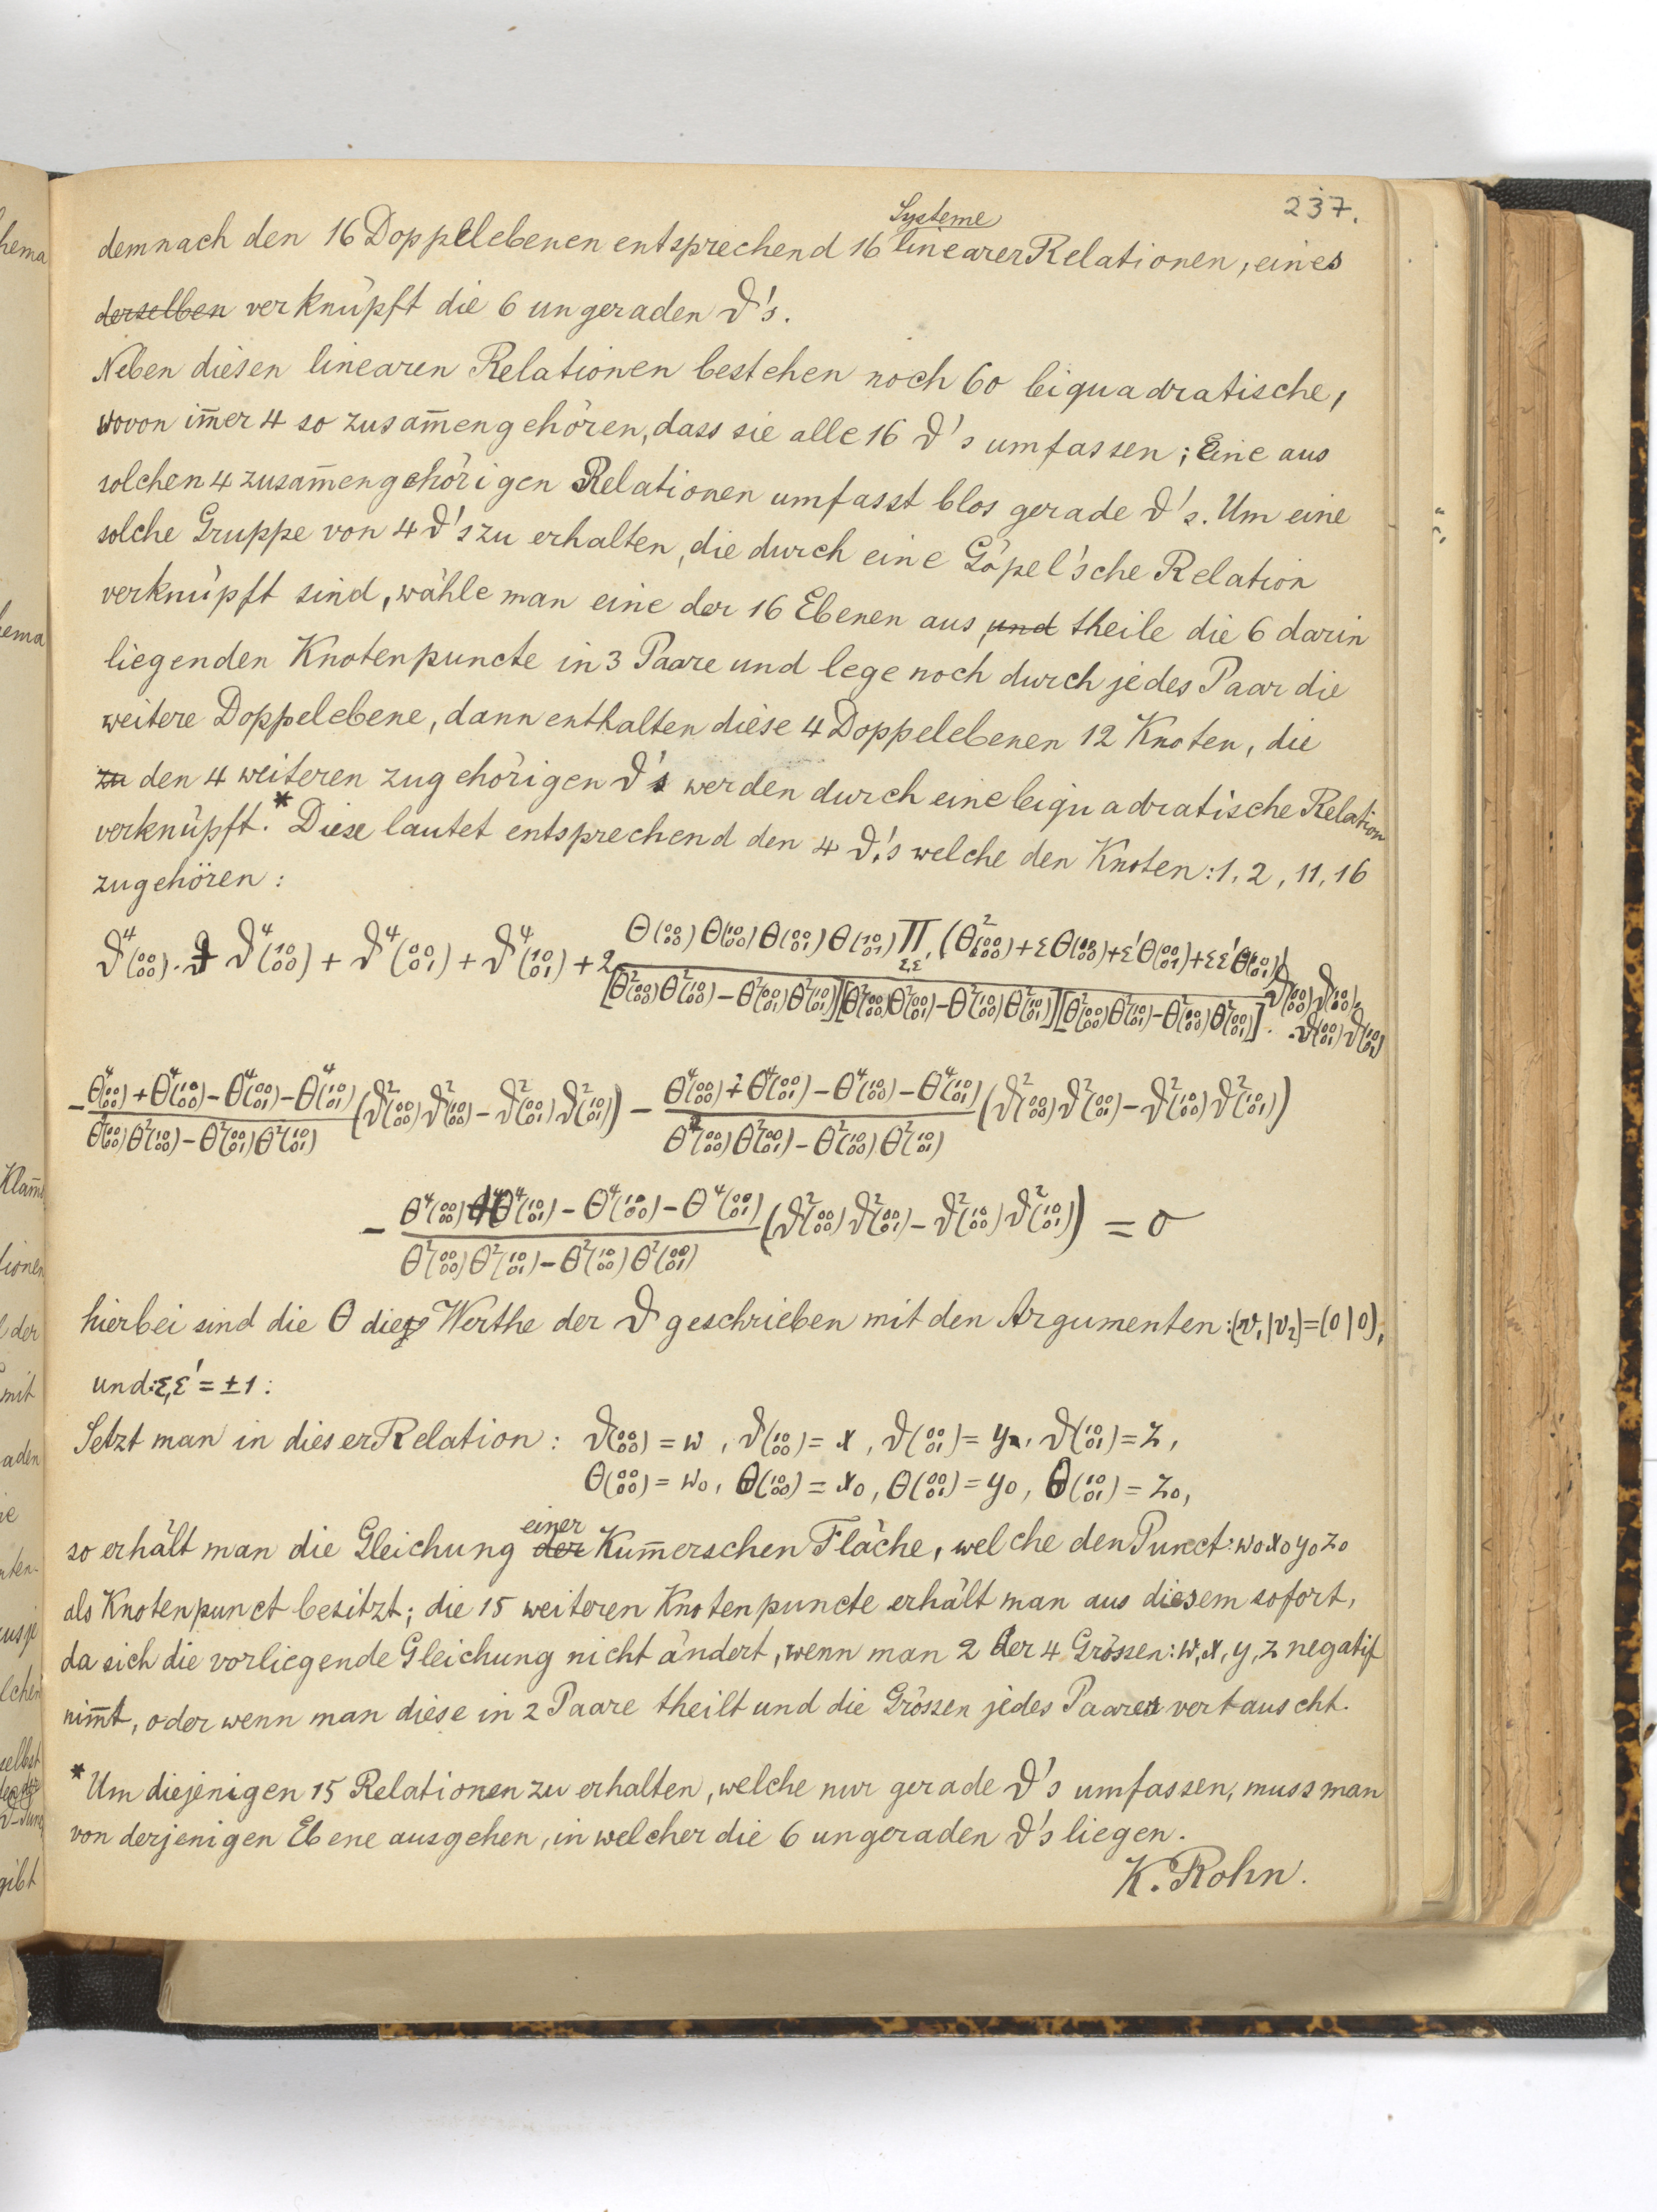 237.
demnach den 16 Doppelebenen entsprechend 16 Systeme linearer Relationen, eines
derselben verknüpft die 6 ungeraden ϑ's.
Neben diesen linearen Relationen bestehen noch 60 biquadratische,
wovon im̄er 4 so zusam̄engehören, dass sie alle 16 ϑ's umfassen; Eine aus
solchen 4 zusam̄engehörigen Relationen umfasst blos gerade ϑ's. Um eine
solche Gruppe von 4 ϑ's zu erhalten, die durch eine Göpel'sche Relation
verknüpft sind, wähle man eine der 16 Ebenen aus, und theile die 6 darin
liegenden Knotenpuncte in 3 Paare und lege noch durch jedes Paar die
weitere Doppelebene, dann enthalten diese 4 Doppelebenen 12 Knoten, die
zu den 4 weiteren zugehörigen ϑ's werden durch eine biquadratische Relation
verknüpft.* Diese lautet entsprechend den 4 ϑ's welche den Knoten: 1, 2, 11, 16
zugehören:
ϑ⁴(00/00) + ϑ⁴(10/00) + ϑ⁴(00/01) + ϑ⁴(10/01) + 2 Θ(00/00) Θ(10/00) Θ(00/01) Θ(10/01) Π ε,ε' (Θ²(00/00) + εΘ(10/00) + ε'Θ(00/01) + εε'Θ(10/01))
[Θ²(00/00)Θ²(10/00) − Θ²(00/01)Θ²(10/01)][Θ²(00/00)Θ²(00/01) − Θ²(10/00)Θ²(10/01)][Θ²(00/00)Θ²(10/01) − Θ²(10/00)Θ²(00/01)] · ϑ(00/00)ϑ(10/00) · ϑ(00/01)ϑ(10/01)
− Θ⁴(00/00) + Θ⁴(10/00) − Θ⁴(00/01) − Θ⁴(10/01) (ϑ²(00/00)ϑ²(10/00) − ϑ²(00/01)ϑ²(10/01)) − Θ⁴(00/00) + Θ⁴(00/01) − Θ⁴(10/00) − Θ⁴(10/01) (ϑ²(00/00)ϑ²(00/01) − ϑ²(10/00)ϑ²(10/01))
Θ²(00/00)Θ²(10/00) − Θ²(00/01)Θ²(10/01) Θ²(00/00)Θ²(00/01) − Θ²(10/00)Θ²(10/01)
− Θ⁴(00/00) + Θ⁴(10/01) − Θ⁴(10/00) − Θ⁴(00/01) (ϑ²(00/00)ϑ²(00/01) − ϑ²(10/00)ϑ²(10/01)) = 0
Θ²(00/00)Θ²(10/01) − Θ²(10/00)Θ²(00/01)
hierbei sind die Θ die Werthe der ϑ geschrieben mit den Argumenten: (v₁|v₂) = (0|0),
und: ε,ε' = ±1:
Setzt man in dieser Relation: ϑ(00/00) = w, ϑ(10/00) = x, ϑ(00/01) = y, ϑ(10/01) = z,
Θ(00/00) = w₀, Θ(10/00) = x₀, Θ(00/01) = y₀, Θ(10/01) = z₀,
so erhält man die Gleichung der einer Kum̄erschen Fläche, welche den Punct: w₀ x₀ y₀ z₀
als Knotenpunct besitzt; die 15 weiteren Knotenpuncte erhält man aus diesem sofort,
da sich die vorliegende Gleichung nicht ändert, wenn man 2 der 4 Grössen: w, x, y, z negatif
nim̄t, oder wenn man diese in 2 Paare theilt und die Grössen jedes Paares vertauscht.
* Um diejenigen 15 Relationen zu erhalten, welche nur gerade ϑ's umfassen, muss man
von derjenigen Ebene ausgehen, in welcher die 6 ungeraden ϑ's liegen.
K. Rohn.